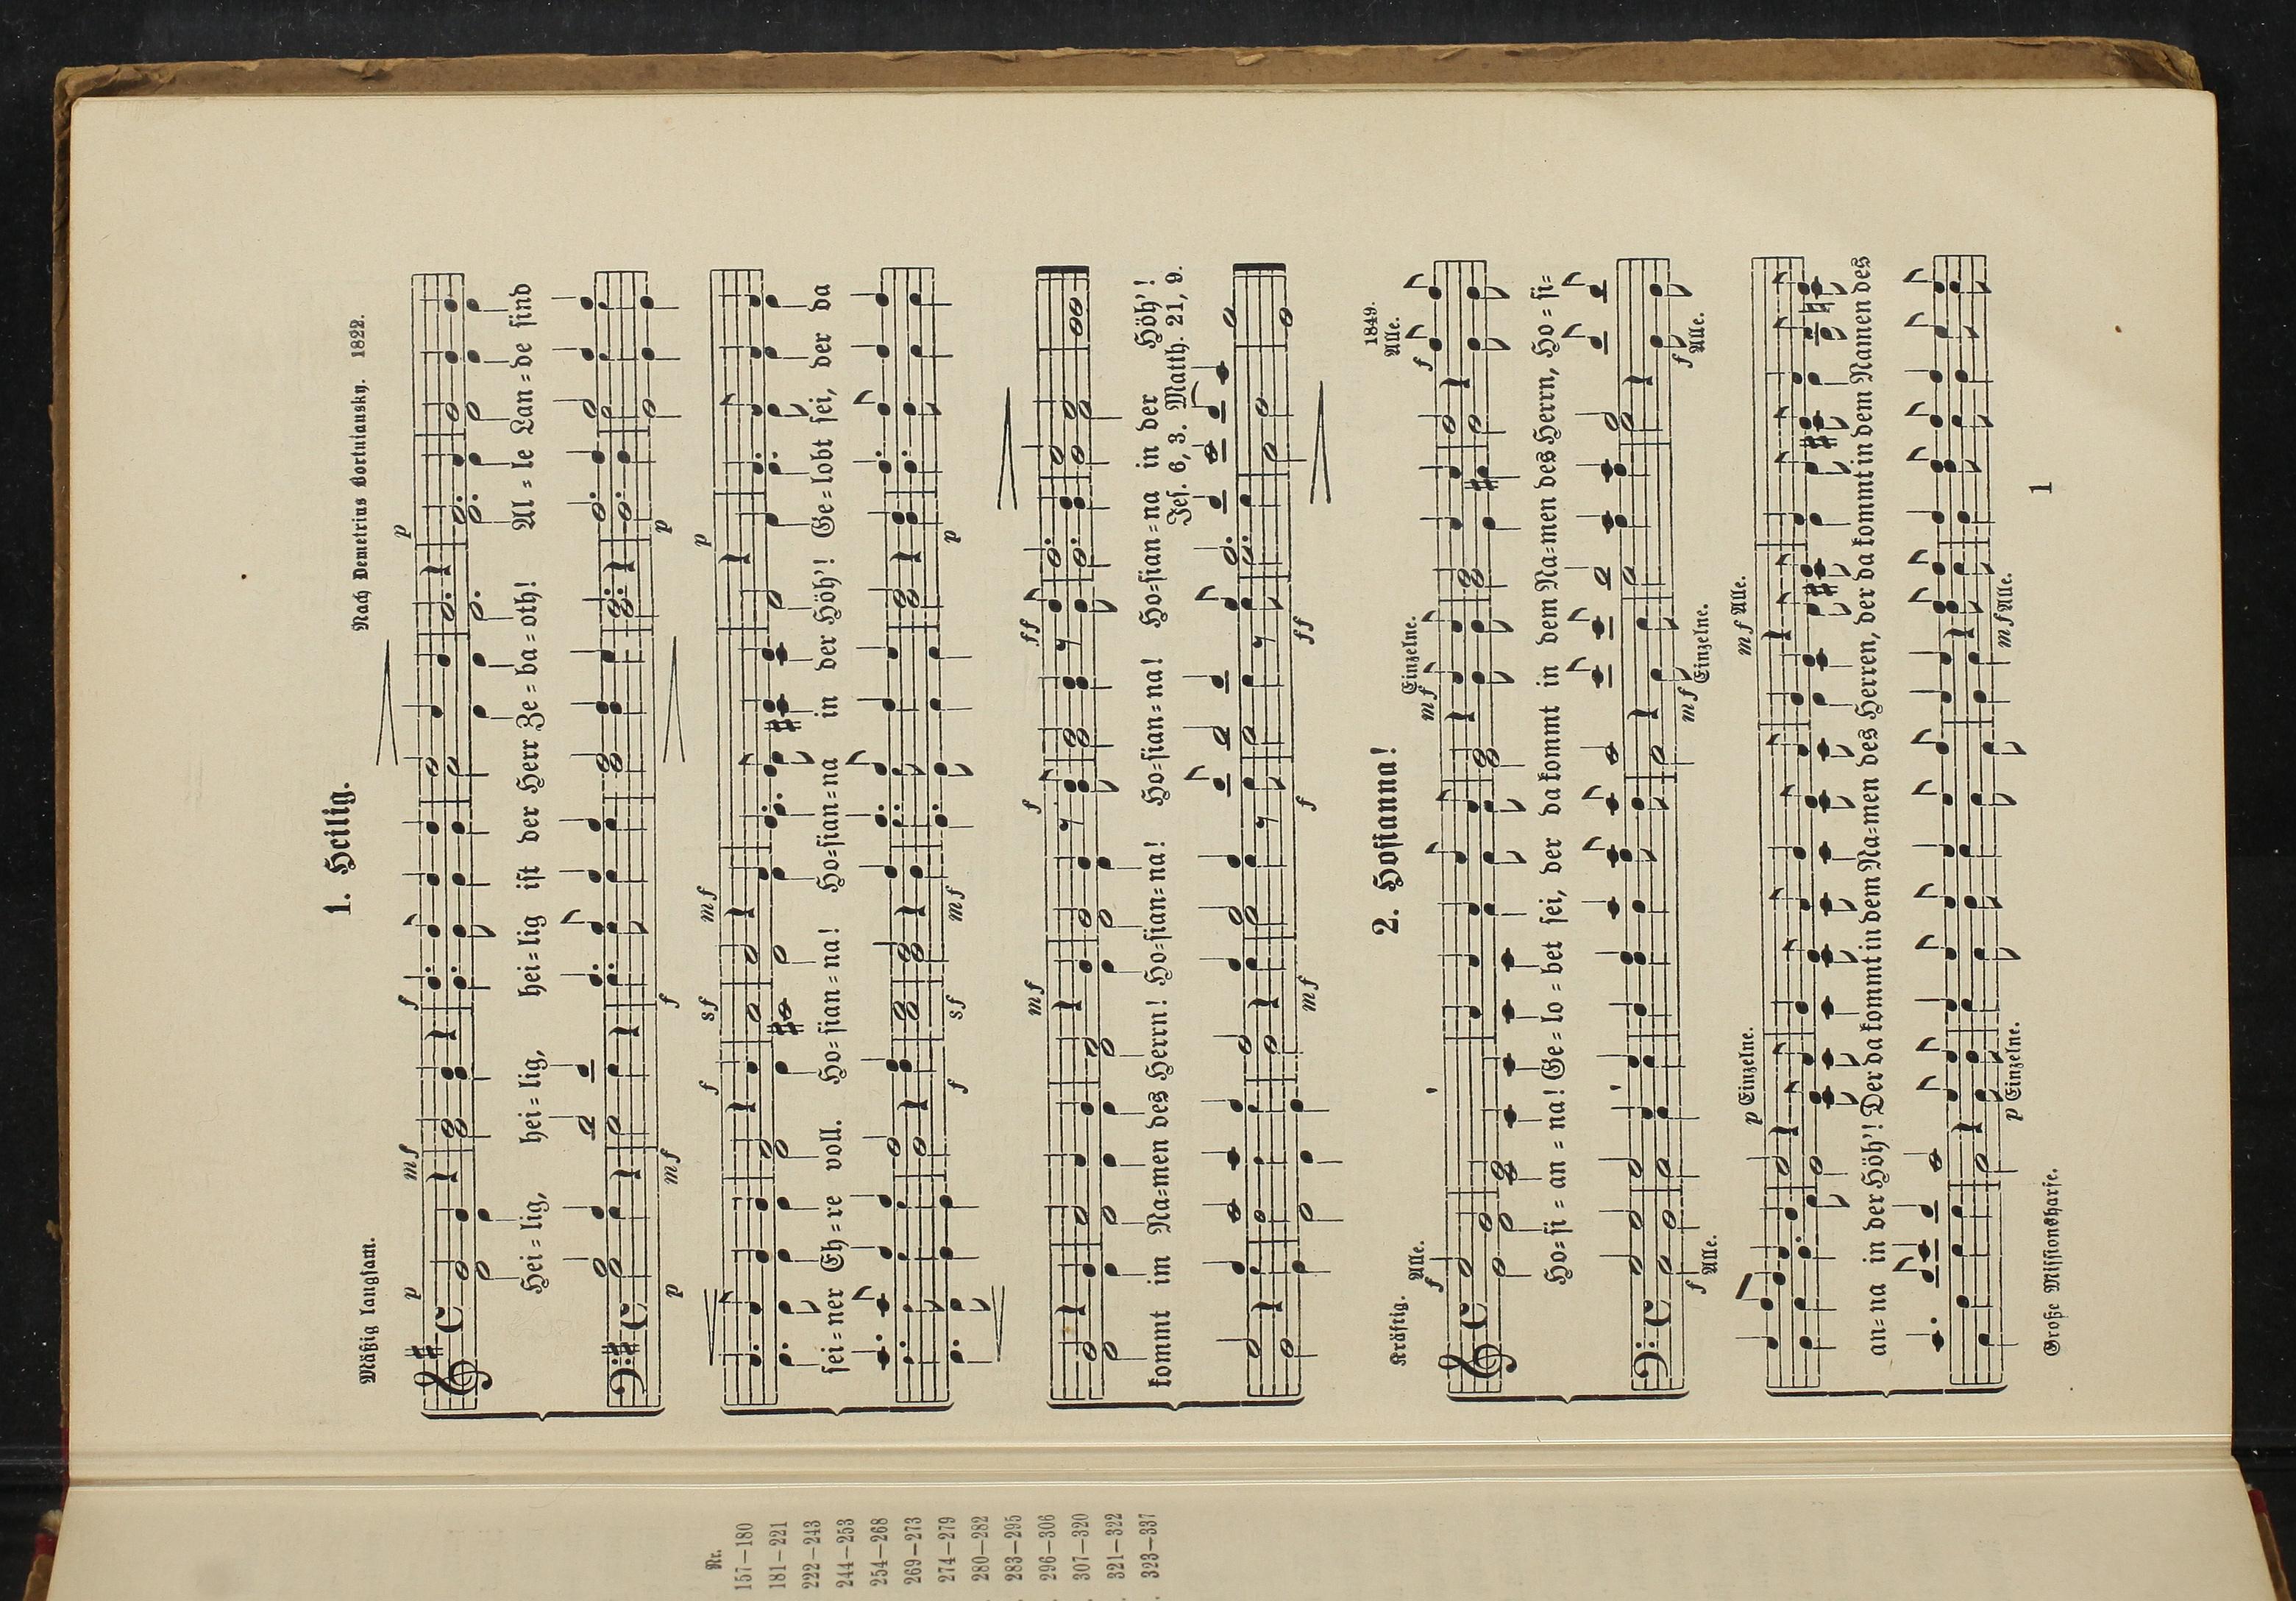 Nr.
157—180
181—221
222—243
244—253
254—268
269—273
274—279
280—282
283—295
296—306
307—320
321—322
323—337
1. Heilig.
Mäßig langsam.
Nach Demetrius Bortniansky. 1822.
p mf f p
Hei=lig, hei=lig, hei=lig ist der Herr Ze=ba=oth! Al=le Lan=de sind
p mf f p
f sf mf p
sei=ner Eh=re voll. Ho=sian=na! Ho=sian=na in der Höh'! Ge=lobt sei, der da
f sf mf p
mf f ff
kommt im Na=men des Herrn! Ho=sian=na! Ho=sian=na! Ho=sian=na in der Höh'!
Jes. 6, 3. Matth. 21, 9.
mf f ff
2. Hosianna!
Kräftig.
1849.
f Alle. mf Einzelne. f Alle.
Ho=si=an=na! Ge=lo=bet sei, der da kommt in dem Na=men des Herrn, Ho=si=
f Alle. mf Einzelne. f Alle.
p Einzelne. mf Alle.
an=na in der Höh'! Der da kommt in dem Na=men des Herren, der da kommt in dem Namen des
p Einzelne. mf Alle.
Große Missionsharfe.
1